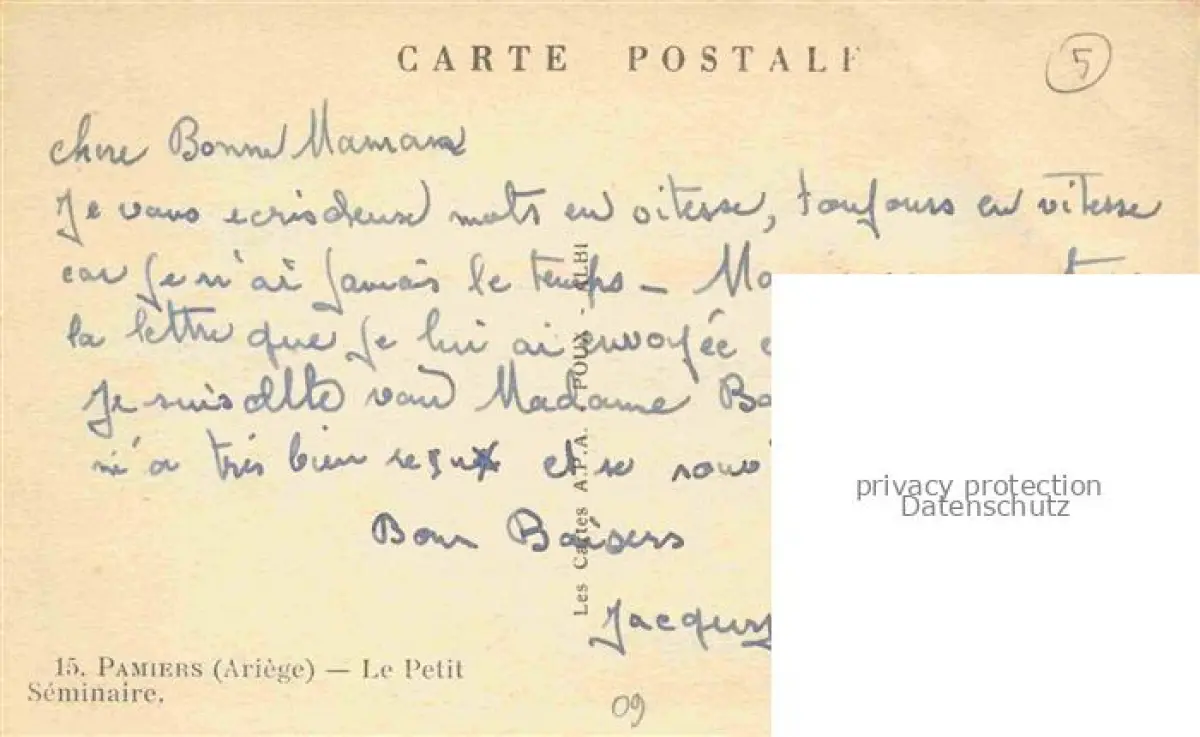 CARTE POSTALE
5
chere Bonne Maman
Je vous ecris deux mots en vitesse, toujours en vitesse
car je n'ai jamais le temps -
la lettre que je lui ai envoyée
Je suis allé Madame
m'a très bien et se
Bons Baisers
Jacques
Les Cartes A.P.A. - POUX - ALBI
15. PAMIERS (Ariège) — Le Petit
Séminaire.
09
privacy protection
Datenschutz